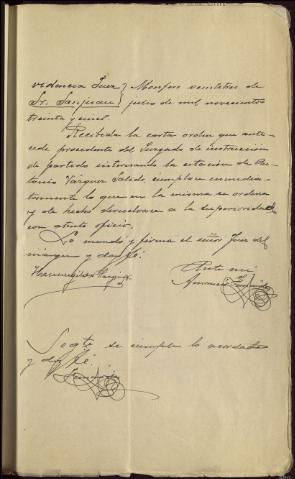 Providencia Juez } Monforte veintitres de
Sr. Sanjuan } julio de mil novecientos
treinta y seis.
Recibida la carta orden que ante-
cede procedente del Juzgado de instrucción
de partido interesando la citación de
Vázquez Salido cumplase inmedia-
tamente lo que en la misma se ordena
y de hecho devuelvase a la superioridad
con atento oficio.
Lo mandó y firma el señor Juez del
margen y doy fé.
Ante mi
Seguido se cumple lo acordado
y doy fé.